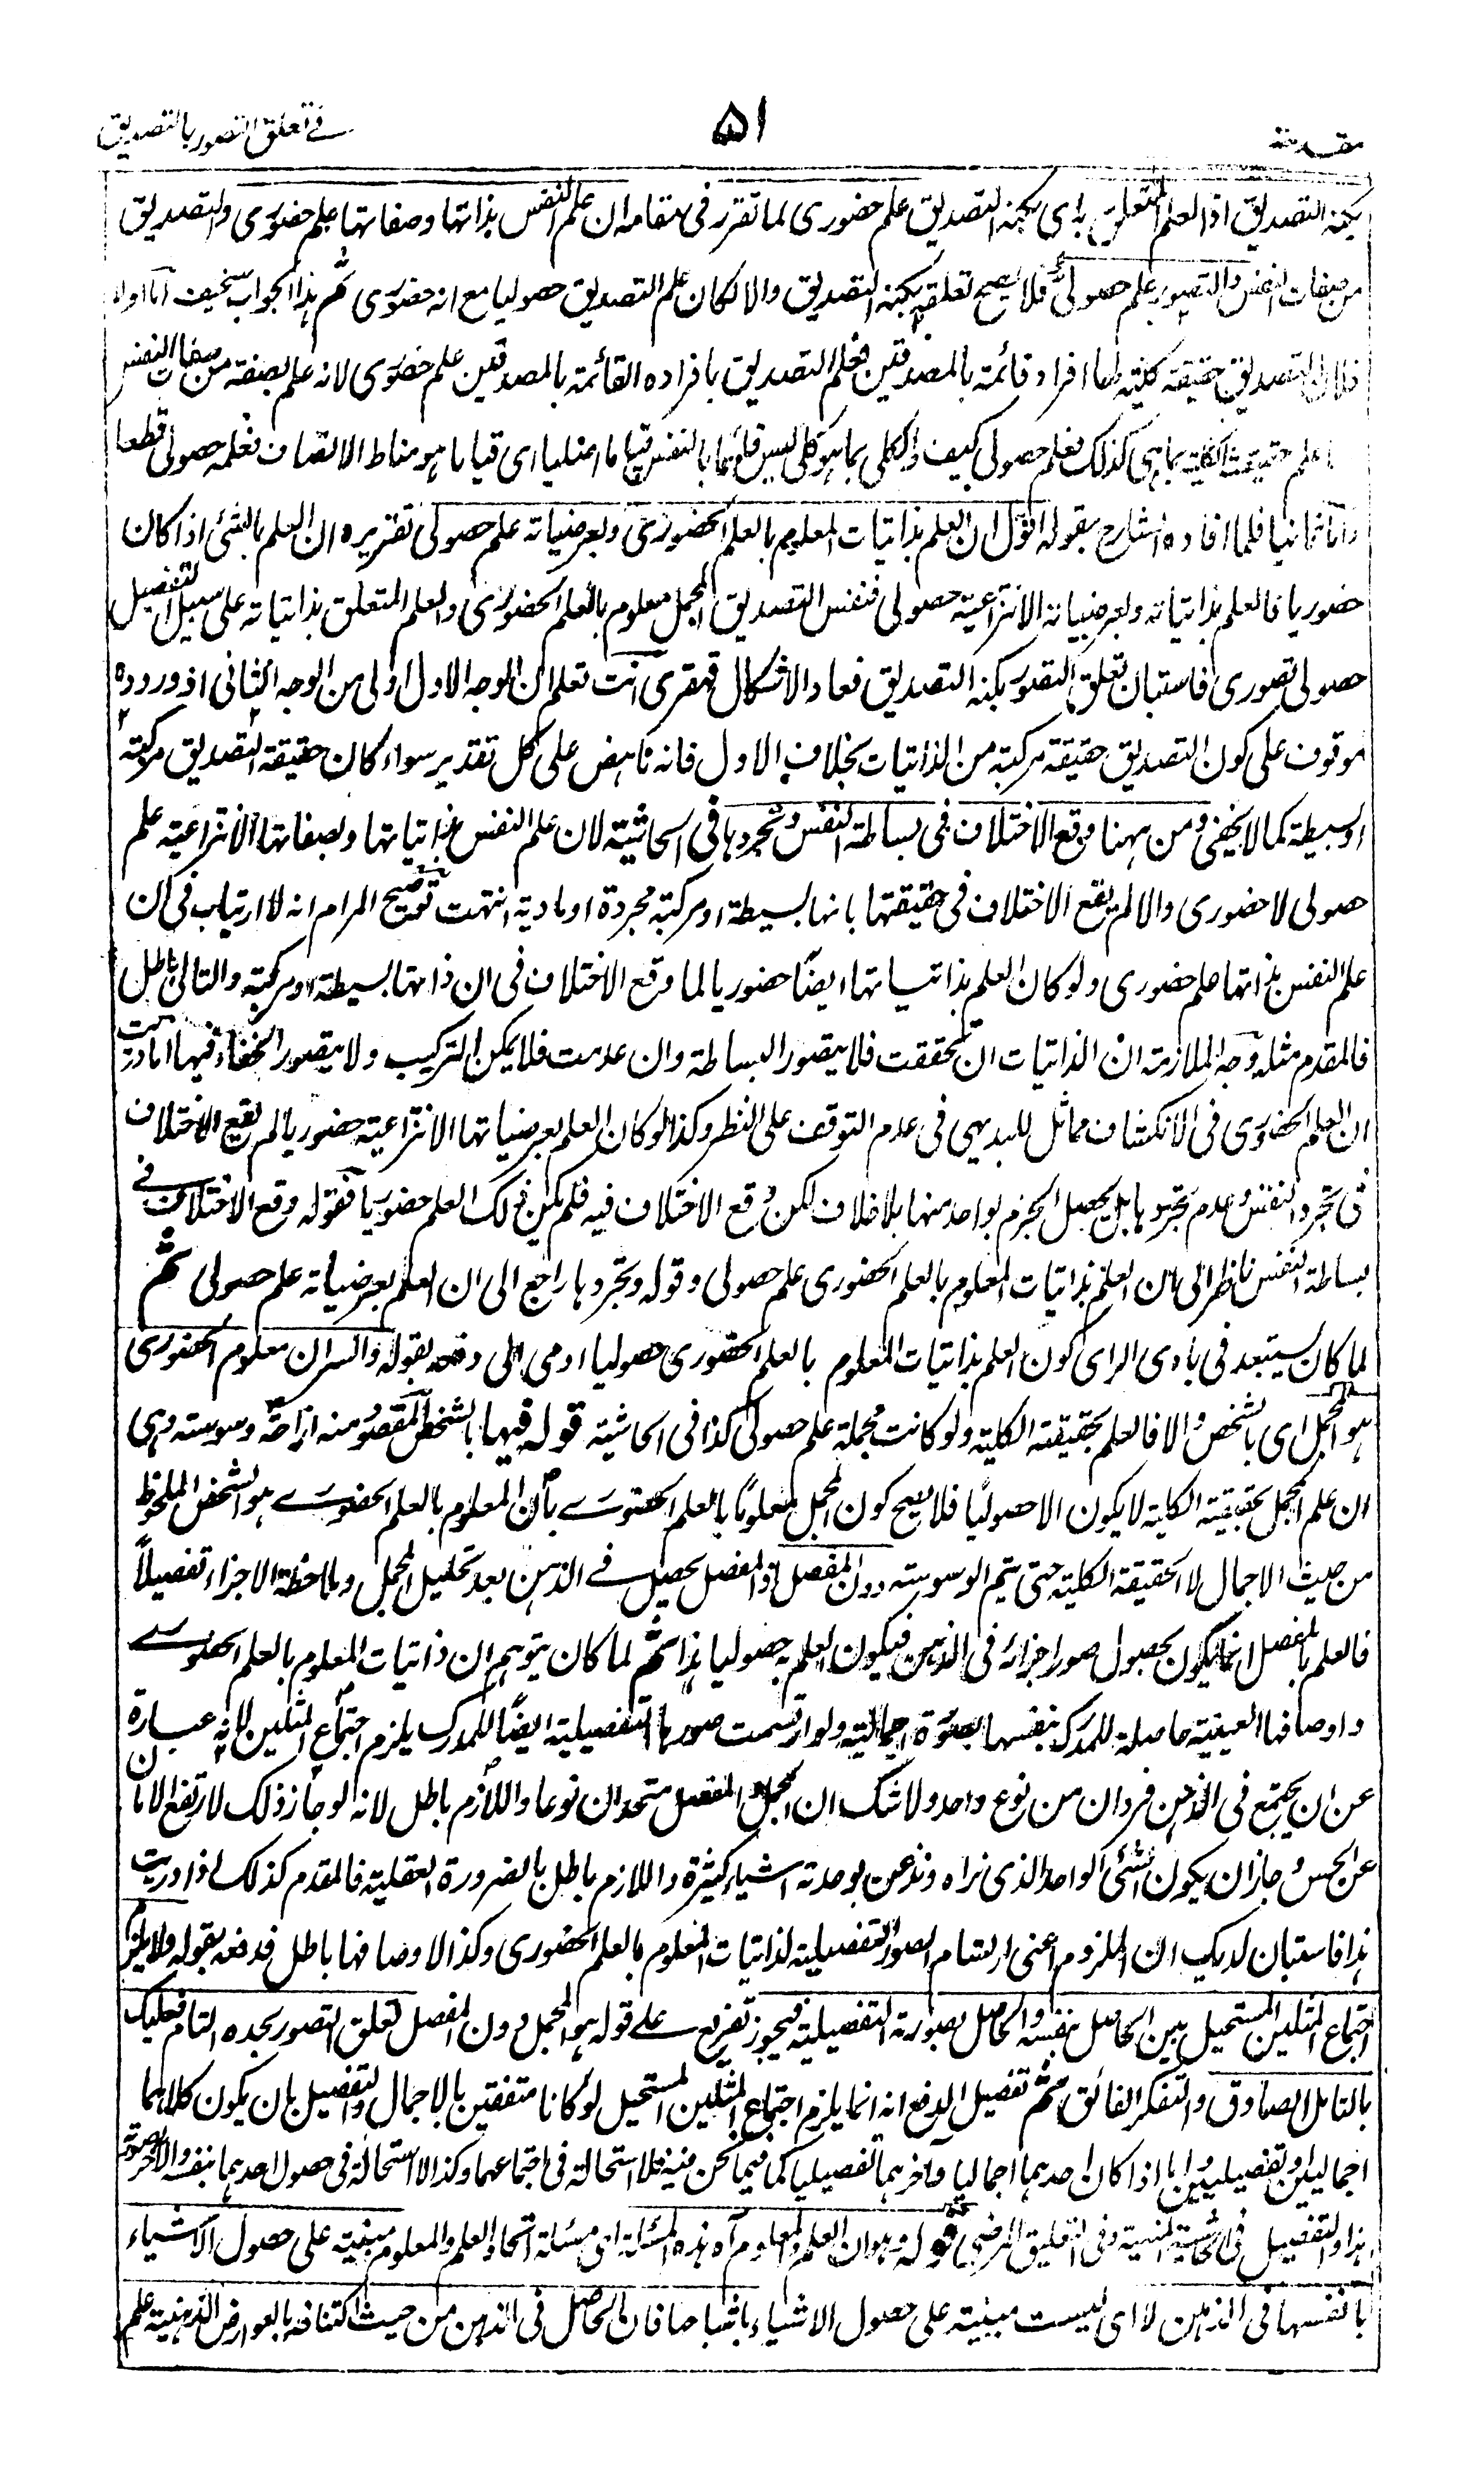 مقدمة
۵۱
في تعلق التصور بالتصديق
بكنه التصديق اذ العلم المتعلق به اى بكنه التصديق علم حضورى لما تقرر فى مقامه ان علم النفس بذاتها وصفاتها علم حضورى والتصديق
من صفات النفس والتصور علم حصولى فلا يصح تعلقه بكنه التصديق والا لكان علم التصديق حصوليا مع انه حضورى ثم هذا الجواب سخيف اما اولا
فلان التصديق حقيقة كلية لها افراد قائمة بالمصدقين فعلم التصديق بافراده القائمة بالمصدقين علم حضورى لانه علم بصفة من صفات النفس
علم حقيقته الكلية بما هى كذلك فعلم حصولى كيف والكلى بما هو كلى ليس قائما بالنفس قياما اصليا اى قياما هو مناط الاتصاف فعلمه حصولى قطعا
واما ثانيا فلما افاده الشارح بقوله اقول ان العلم بذاتيات المعلوم بالعلم الحضورى وبعرضياته علم حصولى تقريره ان العلم بالشئ اذا كان
حضوريا فالعلم بذاتياته وبعرضياته الانتزاعية حصولى فنفس التصديق المجمل معلوم بالعلم الحضورى والعلم المتعلق بذاتياته على سبيل التفصيل
حصولى تصورى فاستبان تعلق التصور بكنه التصديق فعاد الاشكال قهقرى انت تعلم ان الوجه الاول اولى من الوجه الثانى اذ وروده
موقوف على كون التصديق حقيقة مركبة من الذاتيات بخلاف الاول فانه ناهض على كل تقدير سواء كان حقيقة التصديق مركبة
او بسيطة كما لا يخفى ومن ههنا وقع الاختلاف فى بساطة النفس وتجردها فى الحاشية لان علم النفس بذاتياتها وبصفاتها الانتزاعية علم
حصولى لا حضورى والا لم يقع الاختلاف فى حقيقتها بانها بسيطة او مركبة مجردة او مادية انتهت توضيح المرام انه لا ارتياب فى ان
علم النفس بذاتها علم حضورى ولو كان العلم بذاتياتها ايضا حضوريا لما وقع الاختلاف فى ان ذاتها بسيطة او مركبة والتالى باطل
فالمقدم مثله وجه الملازمة ان الذاتيات ان تحققت فلا يتصور البساطة وان عدمت فلا يمكن التركيب ولا يتصور الخفاء فيها اما دريت
ان العلم الحضورى فى الانكشاف مماثل للبديهى فى عدم التوقف على النظر وكذا لو كان العلم بعرضياتها الانتزاعية حضوريا لم يقع الاختلاف
فى تجرد النفس وعدم تجردها بل يحصل الجزم بواحد منها بلا خلاف لكن وقع الاختلاف فيه فلم يكن ذلك العلم حضوريا فقوله وقع الاختلاف في
بساطة النفس ناظر الى ان العلم بذاتيات المعلوم بالعلم الحضورى علم حصولى وقوله وتجردها راجع الى ان العلم بعرضياته علم حصولى ثم
لما كان يستبعد فى بادى الراى كون العلم بذاتيات المعلوم بالعلم الحضورى حصوليا اومى الى دفعه بقوله والسر ان معلوم الحضورى
هو المجمل اى بالشخص والا فالعلم بحقيقته الكلية ولو كانت مجملة علم حصولى كذا فى الحاشية قوله فيها بالشخص المقصود منه ازاحة وسوسة وهى
ان علم المجمل بحقيقته الكلية لا يكون الا حصوليا فلا يصح كون المجمل معلوما بالعلم الحضورى بان المعلوم بالعلم الحضورى هو الشخص الملحوظ
من حيث الاجمال لا الحقيقة الكلية حتى يتم الوسوسة دون المفصل اذ المفصل يحصل في الذهن بعد تحليل المجمل وملاحظة الاجزاء تفصيلاً
فالعلم بالمفصل انما يكون بحصول صور اجزائه فى الذهن فيكون العلم به حصوليا هذا ثم لما كان يتوهم ان ذاتيات المعلوم بالعلم الحضورى
واوصافها العينية حاصلة للمدرك بنفسها بصورة اجمالية ولو ارتسمت صورها التفصيلية ايضا للمدرك يلزم اجتماع المثلين لانه عبارة
عن ان يجتمع فى الذهن فردان من نوع واحد ولا شك ان المجمل والمفصل متحدان نوعا واللازم باطل لانه لو جاز ذلك لارتفع الامان
عن الحس وجاز ان يكون الشئ الواحد الذى نراه ونذعن بوحدته اشياء كثيرة واللازم باطل بالضرورة العقلية فالمقدم كذلك اذا دريت
هذا فاستبان لديك ان الملزوم اعنى ارتسام الصور التفصيلية لذاتيات المعلوم بالعلم الحضورى وكذا لاوصافها باطل فدفعه بقوله ولا يلزم
اجتماع المثلين المستحيل بين الحاصل بنفسه والحاصل بصورته التفصيلية فيجوز تفريع على قوله هو المجمل دون المفصل تعلق التصور بحده التام فعليك
بالتامل الصادق والتفكر الفائق ثم تفصيل الدفع انه انما يلزم اجتماع المثلين المستحيل لو كانا متفقين بالاجمال والتفصيل بان يكون كلاهما
اجماليين او تفصيليين واما اذا كان احدهما اجماليا وآخرهما تفصيليا كما فيما نحن فيه فلا استحالة فى اجتماعهما وكذا لا استحالة فى حصول احدهما بنفسه والآخر بصورته
هذا والتفصيل فى الحاشية المنهية وفى التعليق المرضى قوله وهو ان العلم والمعلوم آه هذه المسئلة اى مسئلة اتحاد العلم والمعلوم مبنية على حصول الاشياء
بانفسها فى الذهن لا اى ليست مبنية على حصول الاشياء باشباحها فان الحاصل فى الذهن من حيث اكتنافه بالعوارض الذهنية علم